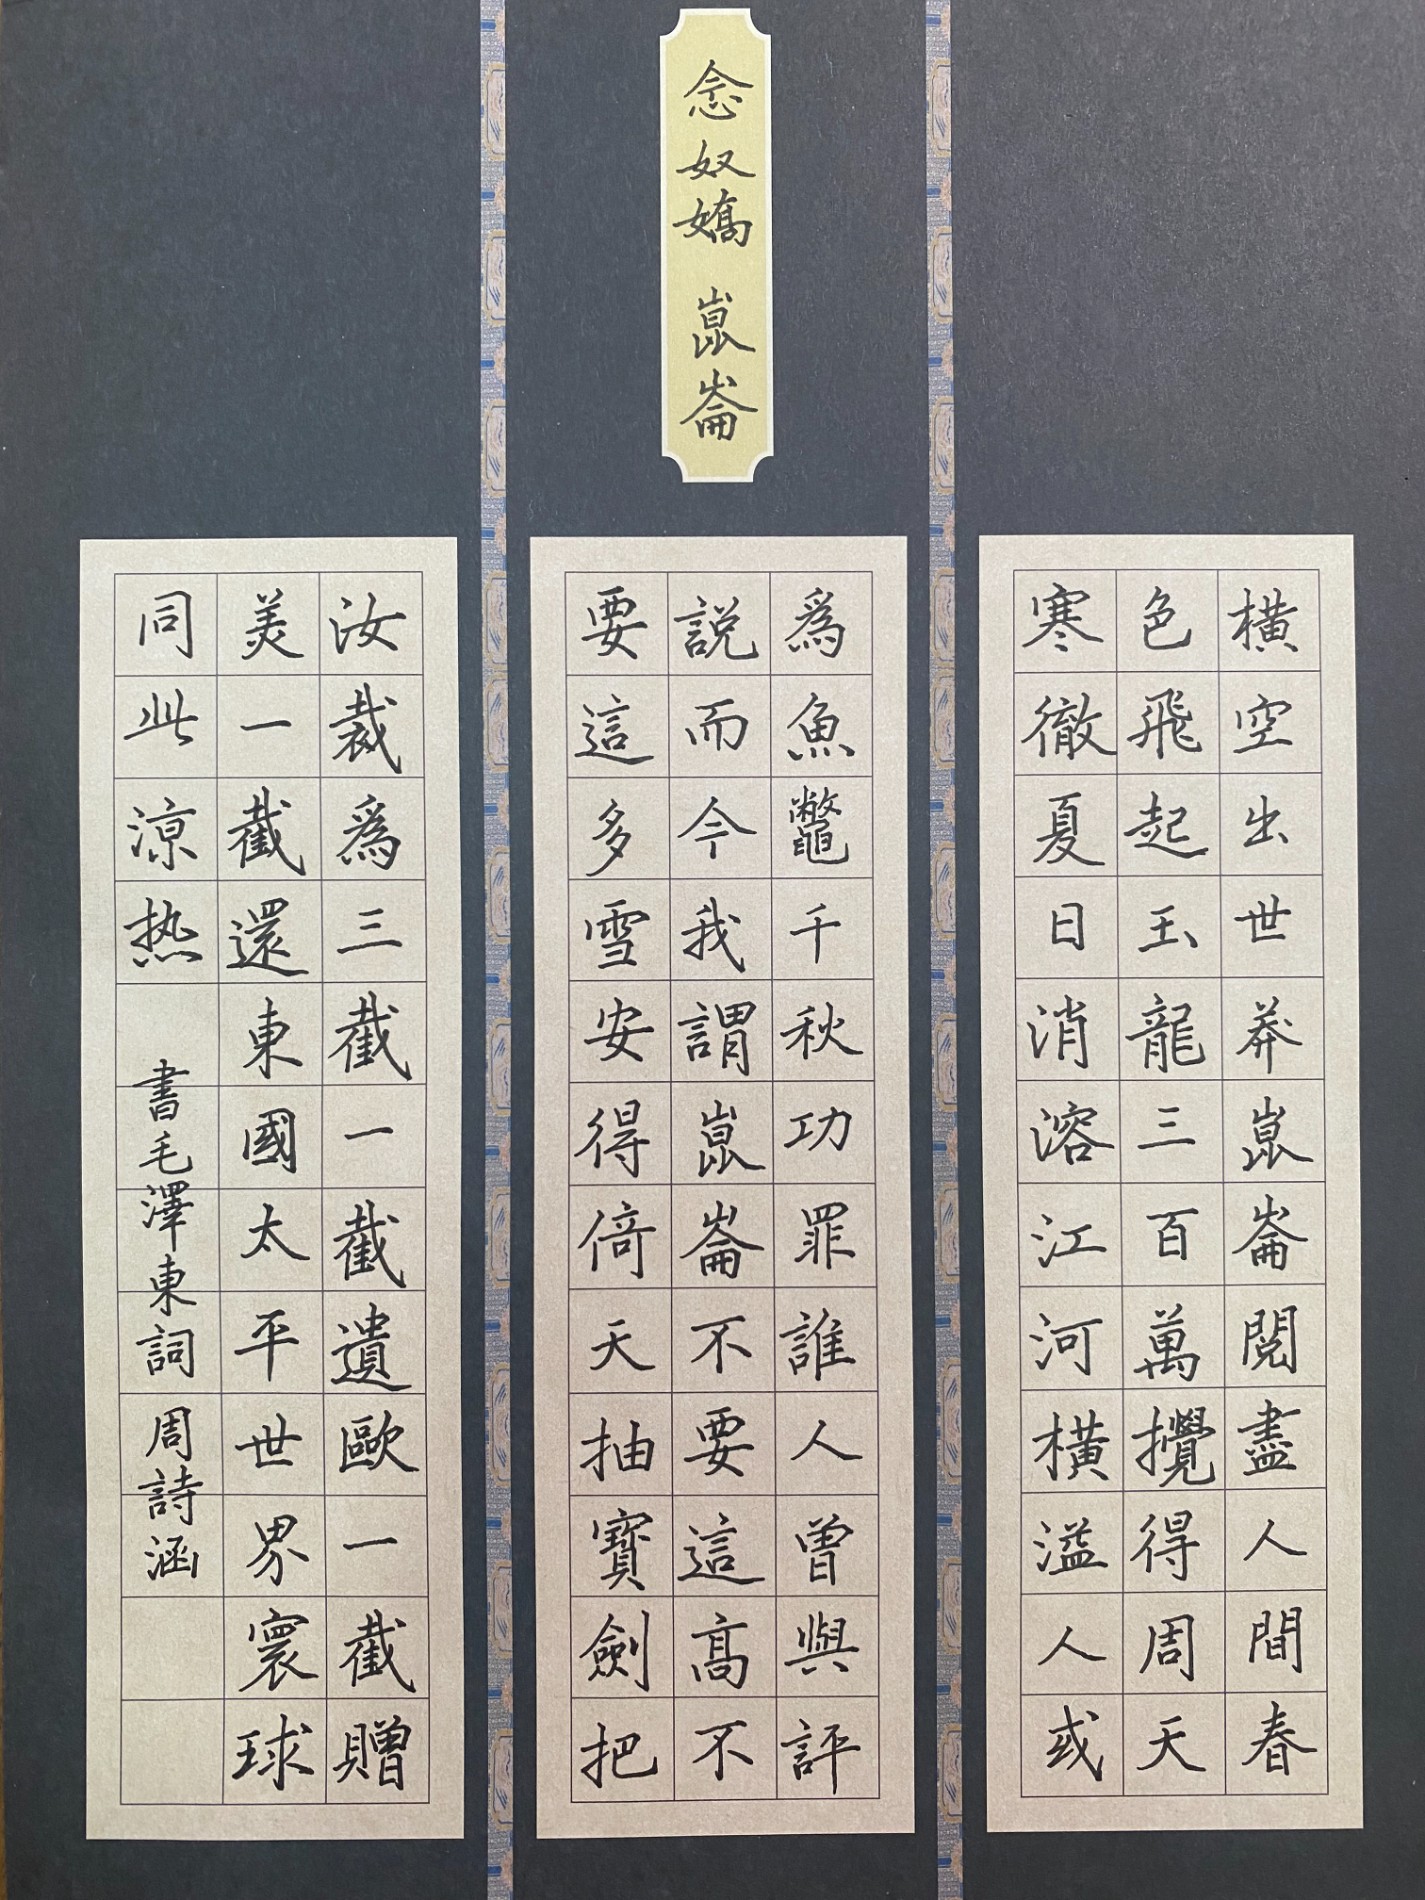 念奴嬌 崑崙
橫空出世莽崑崙閱盡人間春
色飛起玉龍三百萬攪得周天
寒徹夏日消溶江河橫溢人或
為魚鼈千秋功罪誰人曾與評
說而今我謂崑崙不要這高不
要這多雪安得倚天抽寶劍把
汝裁為三截一截遺歐一截贈
美一截還東國太平世界寰球
同此涼热
書毛澤東詞 周詩涵